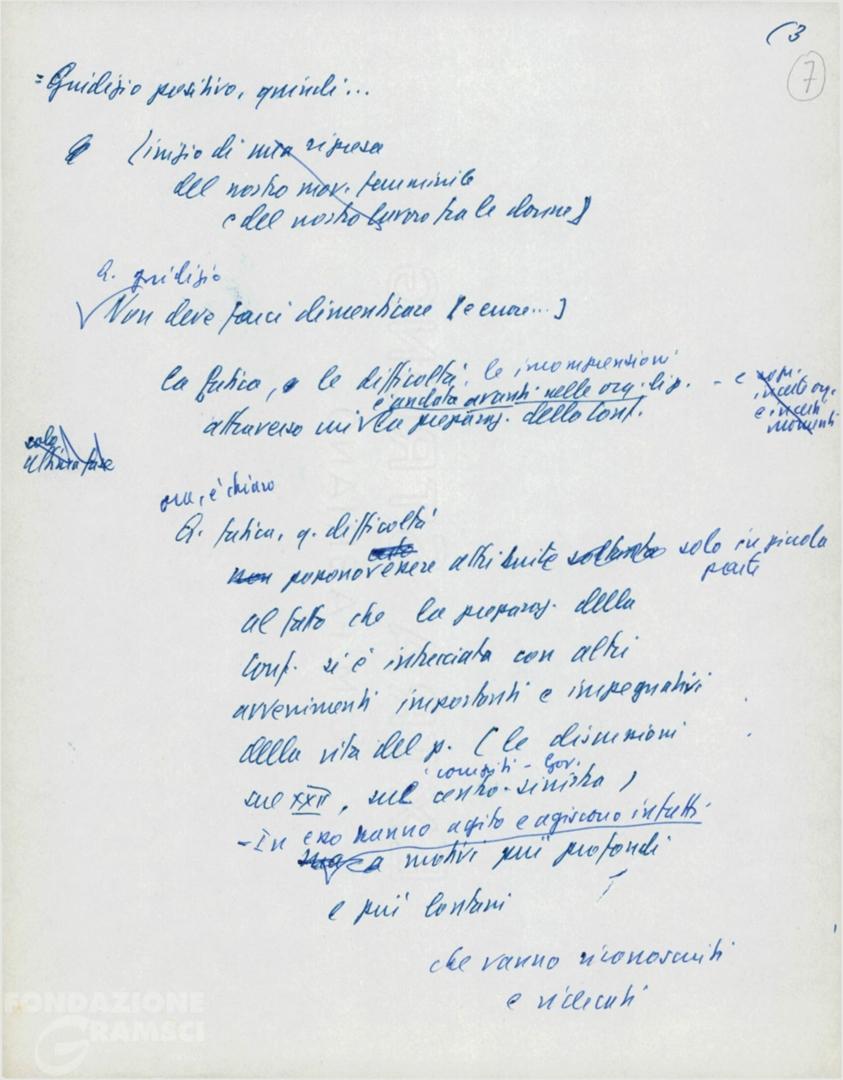 (3
7
= Giudizio positivo, quindi...
(inizio di una ripresa
del nostro mov. femminile
e del nostro lavoro tra le donne)
Q. giudizio
Non deve farci dimenticare [e errore...]
la fatica, le difficoltà, le incomprensioni
è andata avanti nelle org. di p. - e
attraverso cui la preparaz. della Conf.
solo
ultima fase
ora, è chiaro
Q. fatica, q. difficoltà
non possono essere attribuite soltanto solo in piccola
parte
al fatto che la preparaz. della
Conf. si è intrecciata con altri
avvenimenti importanti e impegnativi
della vita del p. (le discussioni
comizi - Gov.
sul XXII, sul centro-sinistra)
- In essa hanno agito e agiscono infatti
motivi più profondi
e più lontani
che vanno riconosciuti
e ridecuti
FONDAZIONE
GRAMSCI